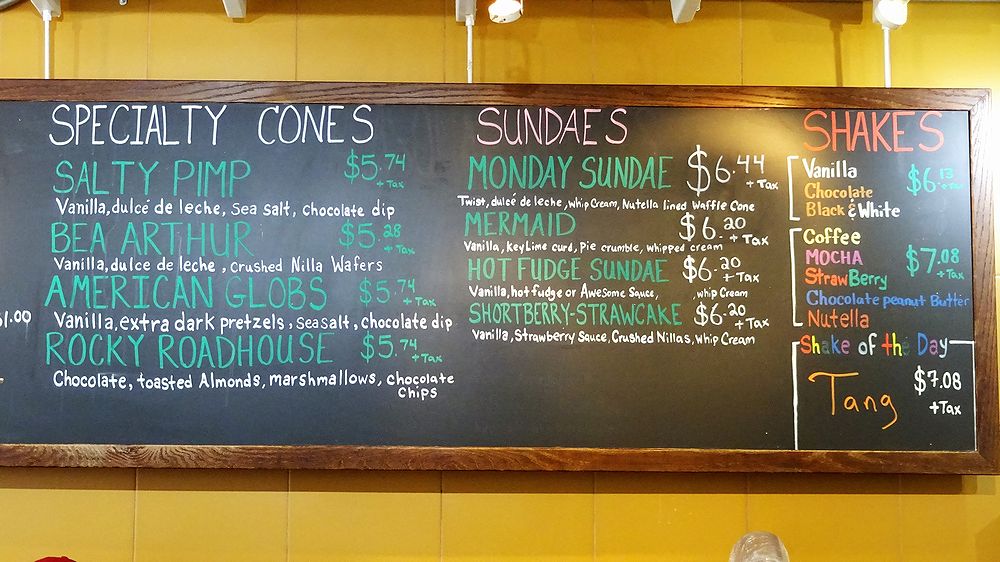 SPECIALTY CONES
SALTY PIMP $5.74 + Tax
Vanilla, dulcé de leche, sea salt, chocolate dip
BEA ARTHUR $5.28 + Tax
Vanilla, dulce de leche, crushed Nilla Wafers
AMERICAN GLOBS $5.74 + Tax
$1.00
Vanilla, extra dark pretzels, sea salt, chocolate dip
ROCKY ROADHOUSE $5.74 + Tax
Chocolate, toasted Almonds, marshmallows, chocolate
chips
SUNDAES
MONDAY SUNDAE $6.44 + Tax
Twist, dulcé de leche, whip Cream, Nutella lined Waffle Cone
MERMAID $6.20 + Tax
Vanilla, key Lime curd, Pie crumble, whipped cream
HOT FUDGE SUNDAE $6.20 + Tax
Vanilla, hot fudge or Awesome Sauce, whip Cream
SHORTBERRY-STRAWCAKE $6.20 + Tax
Vanilla, Strawberry Sauce, Crushed Nillas, Whip Cream
SHAKES
Vanilla
Chocolate $6.13 + Tax
Black & White
Coffee
MOCHA $7.08 + Tax
StrawBerry
Chocolate peanut Butter
Nutella
Shake of the Day
Tang $7.08
+ Tax